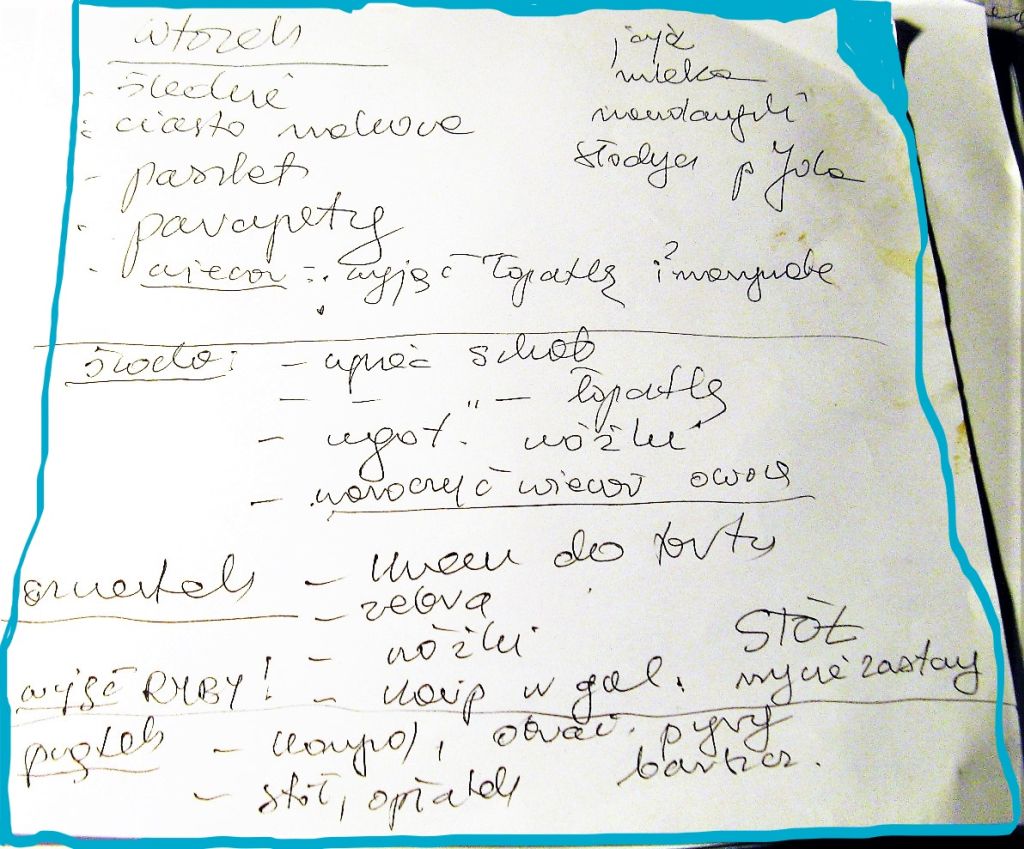 wtorek
- śledzie
- ciasto makowe
- pasztet
- parapety
- wieczór - wyjąć łopatkę i? marynatę
jajka
mleko
mandarynki
słodycze p Jola
środa: - upiec schab
- - " - łopatkę
- ugot. nóżki
- namoczyć wieczór owoce
czwartek - krem do tortu
- żebra
- nóżki
wyjąć RYBY! - karp w gal.
STÓŁ
mycie zastawy
piątek - kompot, obrać pyry
- stół, opłatek
barszcz.